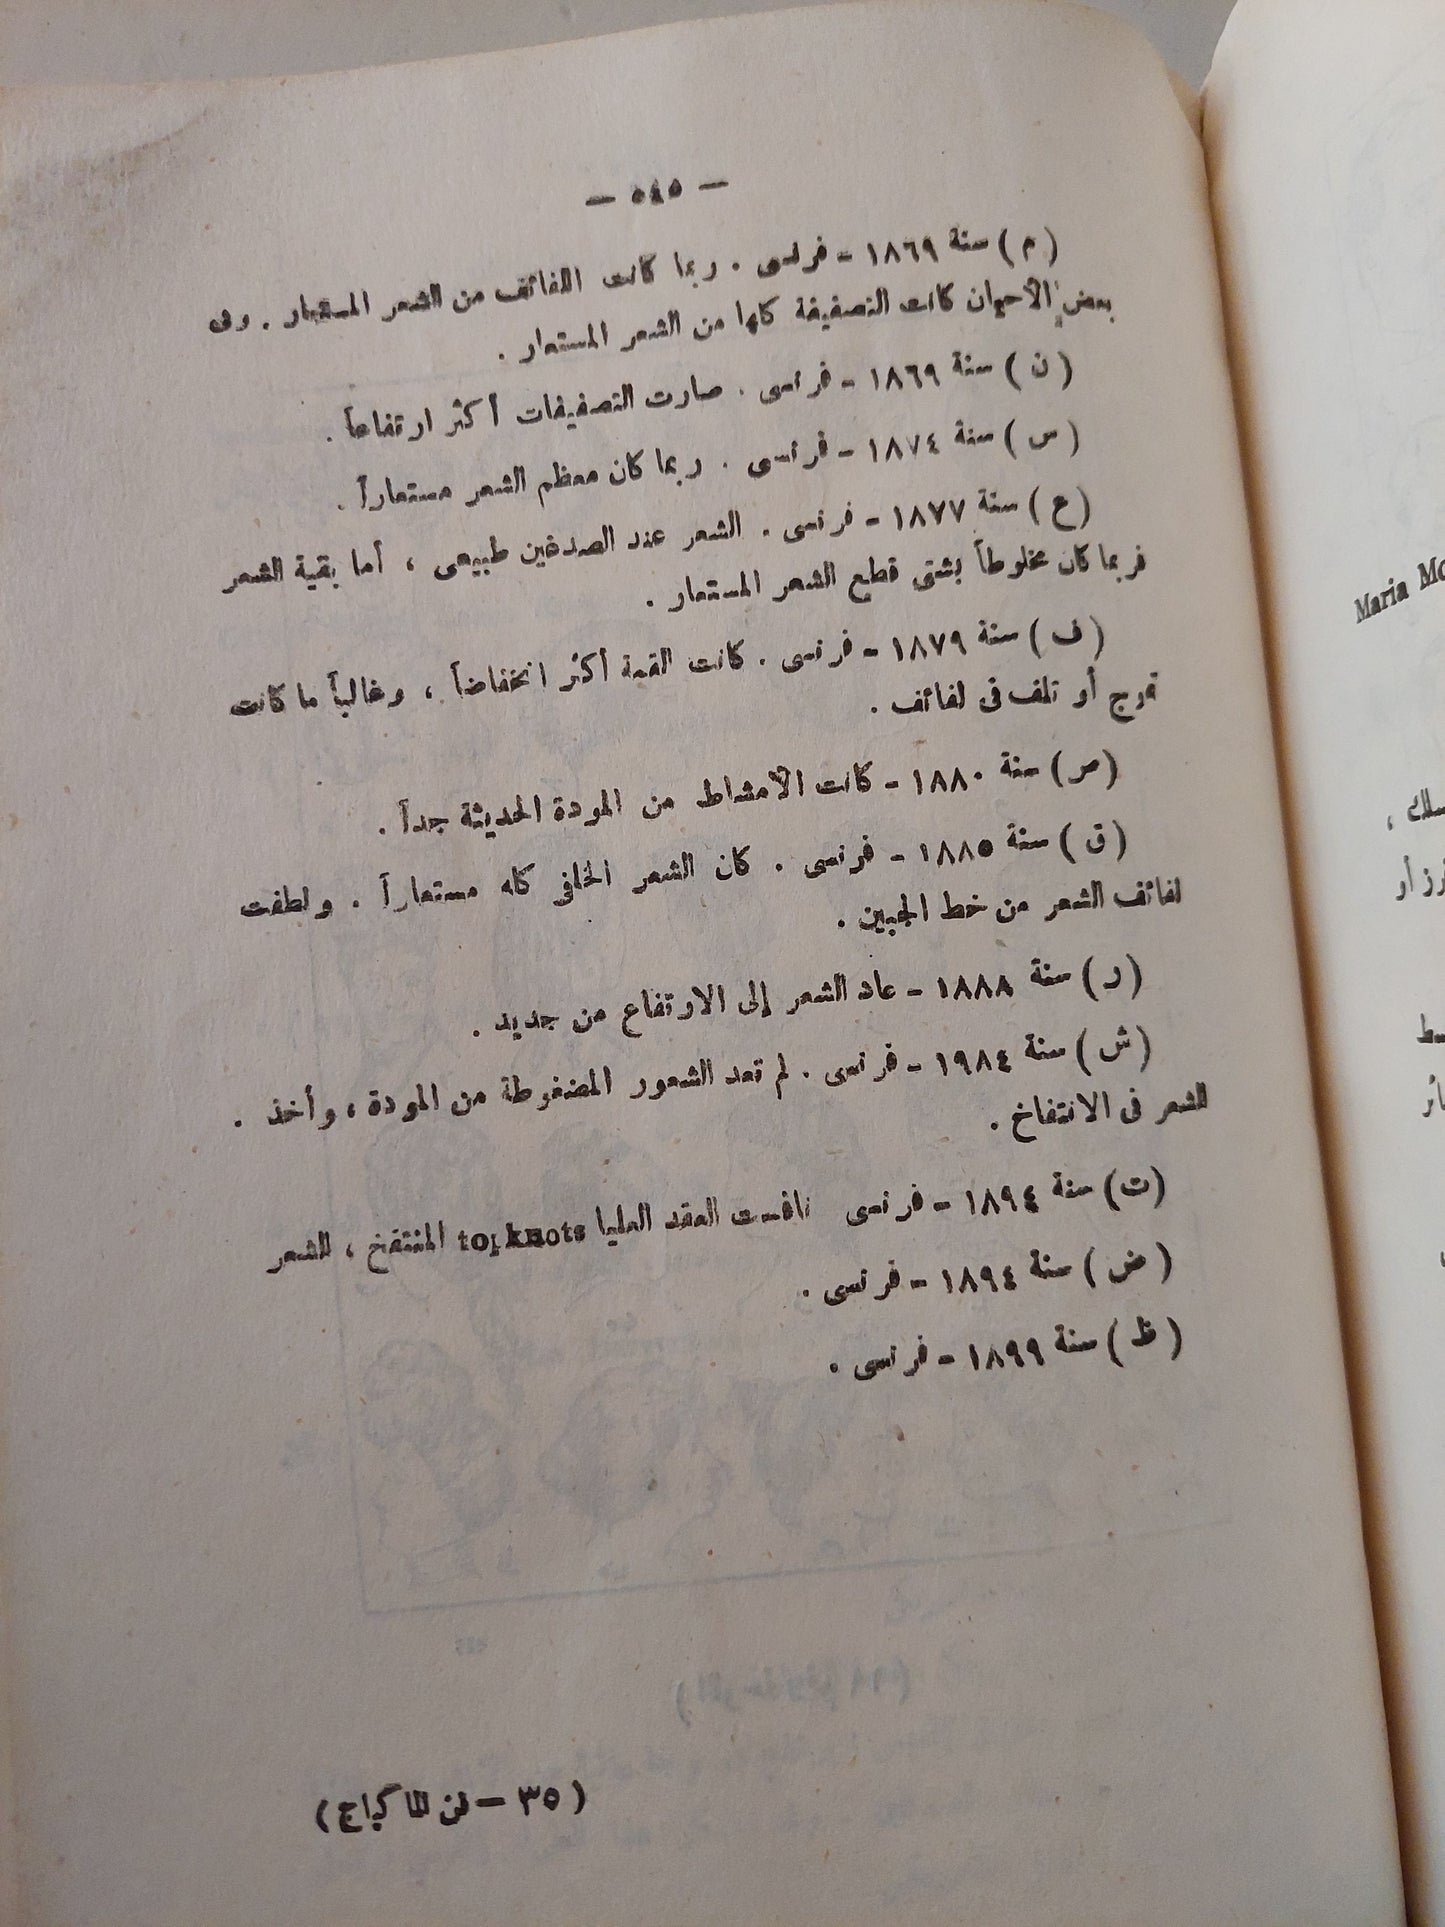 — ٥٤٥ —
( م ) سنة ١٨٦٩ - فرنسى . ربما كانت اللفائف من الشعر المستعار . وفى
بعض الأحيان كانت التصفيفة كلها من الشعر المستعار .
( ن ) سنة ١٨٦٩ - فرنسى . صارت التصفيفات أكثر ارتفاعاً .
( س ) سنة ١٨٧٤ - فرنسى . ربما كان معظم الشعر مستعاراً .
( ع ) سنة ١٨٧٧ - فرنسى . الشعر عند الصدغين طبيعى ، أما بقية الشعر
فربما كان مخلوطاً بشتى قطع الشعر المستعار .
( ف ) سنة ١٨٧٩ - فرنسى . كانت القمة أكثر انخفاضاً ، وغالباً ما كانت
تموج أو تلف فى لفائف .
( ص ) سنة ١٨٨٠ - كانت الامشاط من المودة الحديثة جداً .
( ق ) سنة ١٨٨٥ - فرنسى . كان الشعر الخلفى كله مستعاراً . ولطفت
لفائف الشعر من خط الجبين .
( ر ) سنة ١٨٨٨ - عاد الشعر إلى الارتفاع من جديد .
( ش ) سنة ١٩٨٤ - فرنسى . لم تعد الشعور المضغوطة من المودة ، وأخذ .
الشعر فى الانتفاخ .
( ت ) سنة ١٨٩٤ - فرنسى نافست العقد العليا topknots المنتفخ ، الشعر
( ض ) سنة ١٨٩٤ - فرنسى .
( ظ ) سنة ١٨٩٩ - فرنسى .
( ٣٥ — فن الماكياج )
Maria
سلك ،
أو